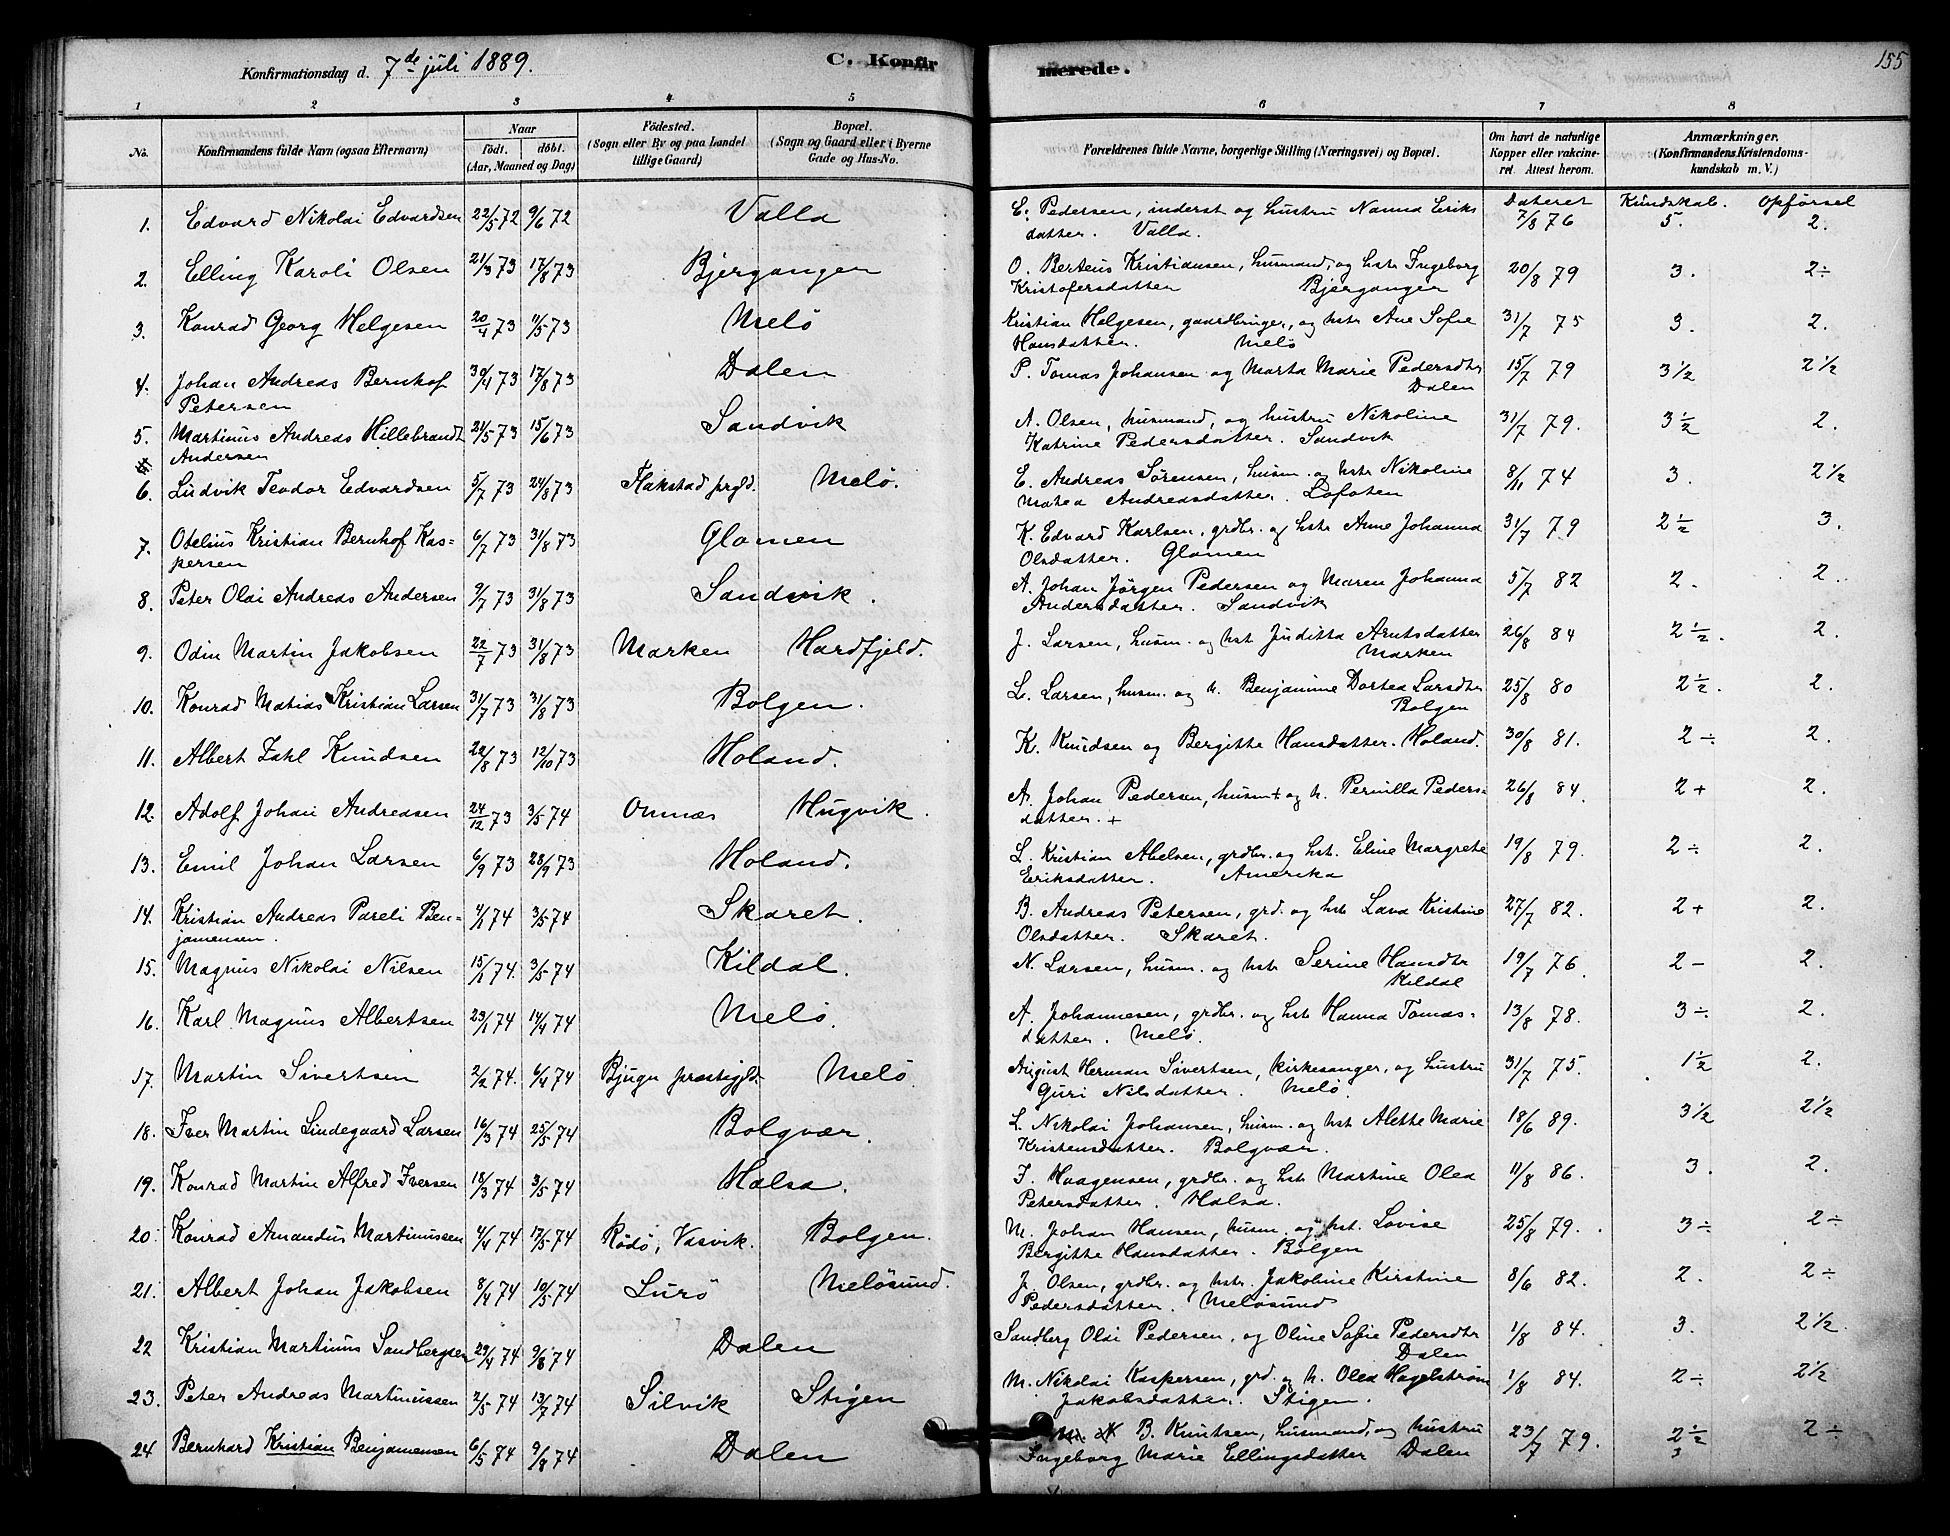 155
Konfirmationsdag d. 7de juli 1889. C. Konfirmerede.
1 2 3 4 5 6 7 8
No. Konfirmandens fulde Navn (ogsaa Efternavn) Naar født. døbt. (Aar, Maaned og Dag) Fødested. (Sogn eller By og paa Landet tillige Gaard) Bopæl. (Sogn og Gaard eller i Byerne Gade og Hus-No. Forældrenes fulde Navne, borgerlige Stilling (Næringsvei) og Bopæl. Om havt de naturlige Kopper eller vakcineret. Attest herom. Anmærkninger. (Konfirmandens Kristendomskundskab m. V.)
Dateret Kundskab. Opførsel
1. Edvard Nikolai Edvardsen 22/5 72 9/6 72 Valla E. Pedersen, inderst og hustru Nanna Eriks 7/8 76 5. 2.
datter. Valla.
2. Elling Karoli Olsen 21/3 73 17/8 73 Bjergangen O. Berteus Kristiansen, husmand, og hstr Ingeborg 20/8 79 3. 2÷
Kristofersdatter Bjergangen
3. Konrad Georg Helgesen 20/4 73 11/5 73 Melö Kristian Helgesen, gaardbruger, og hstr Ane Sofie 31/7 75 3. 2.
Hansdatter. Melö
4. Johan Andreas Bernhof 30/4 73 17/8 73 Dalen P. Tomas Johansen og Marta Marie Pedersdtr 15/7 79 3 1/2 2 1/2
Petersen Dalen
5. Martinus Andreas Hillebrandt 21/5 73 15/6 73 Sandvik A. Olsen, husmand, og hustru Nikoline 31/7 79. 3 1/2 2.
Andersen Katrine Pedersdatter. Sandvik
6. Ludvik Teodor Edvardsen 5/7 73 24/8 73 Flakstad prgld. Melö. E. Andreas Sörensen, husm. og hstr Nikoline 8/11 74 3. 2 1/2
Matea Andreasdatter. Lofoten
7. Otelius Kristian Bernhof Kas= 6/7 73 31/8 73 Glomen K. Edvard Karlsen, grdbr. og hstr Anne Johanna 31/7 79 2 1/2 3.
persen Olsdatter. Glomen
8. Peter Olai Andreas Andersen 9/7 73 31/8 73 Sandvik. A. Johan Jörgen Pedersen og Maren Johanna 5/7 82 2. 2.
Andersdatter. Sandvik
9. Odin Martin Jakobsen 22/7 73 31/8 73 Marken Hardfjeld. J. Larsen, husm. og hst Juditta Arntsdatter 26/8 84 2 1/2. 2.
Marken
10. Konrad Matias Kristian Larsen 31/7 73 31/8 73 Bolgen. L. Larsen, husm. og h. Benjamine Dortea Larsdtr 25/8 80 2 1/2. 2.
Bolgen
11. Albert Zahl Knudsen 22/8 73 12/10 73 Holand. K. Knudsen og Bergitte Hansdatter. Holand. 30/8 81. 2÷ 2.
12. Adolf Johan Andreasen 24/12 73 3/5 74 Onnæs Hugvik. A. Johan Pedersen, husm + og h. Pernilla Peders= 26/8 84. 2+ 2.
datter. +
13. Emil Johan Larsen 6/9 73 28/9 73 Holand. L. Kristian Abelsen, grdbr. og hst. Eline Margrete 19/8 79. 2÷ 2.
Eriksdatter. Amerika
14. Kristian Andreas Pareli Ben= 4/1 74 3/5 74 Skaret. B. Andreas Petersen, grd. og hst Lava Kristine 27/7 82. 2+ 2.
jamensen. Olsdatter. Skaret.
15. Magnus Nikolai Nilsen 15/1 74. 3/5 74 Kildal. N. Larsen, husm. og hstr Serine Hansdtr 19/7 76 2– 2.
Kildal
16. Karl Magnus Albertsen 23/1 74 14/4 74 Melö. A. Johannesen, grdbr. og hstr Hanna Tomas= 13/8 78. 3÷ 2.
datter. Melö.
17. Martin Sivertsen 2/2 74. 6/4 74 Bjugn præstegjld. Melö August Herman Sivertsen, kirkesanger, og hustru 31/7 75. 1 1/2 2.
Guri Nilsdatter. Melö.
18. Iver Martin Lindegaard Larsen 16/3 74 25/5 74 Bolgvær. L. Nikolai Johansen, husm. og hst Alette Marie 18/6 89. 3 1/2 2 1/2
Kristensdatter. Bolgvær.
19. Konrad Martin Alfred Iversen 18/3 74 3/5 74 Halsa. I. Haagensen, grdbr. og hstr Martine Olea 11/8 86. 3. 2.
Petersdatter. Halsa.
20. Konrad Amandus Martinussen 4/4 74 17/5 74 Rödö, Vasvik. Bolgen. M. Johan Hansen, husm. og hst. Lovise 25/8 79. 3÷ 2÷
Bergitte Hansdatter. Bolgen
21. Albert Johan Jakobsen 8/4 74 10/5 74 Lurö Melösund. J. Olsen, grdbr. og hstr. Jakobine Kirstine 8/6 82. 2. 2÷
Pedersdatter. Melösund
22 Kristian Martinus Sandbergsen 29/4 74 9/8 74 Dalen Sandberg Olai Pedersen, og Oline Sofie Pedersdtr 1/8 84. 3. 2 1/2.
Dalen
23. Peter Andreas Martinussen 2/5 74 13/7 74 Silvik Stigen M. Nikolai Kaspersen, grd. og h. Olea Hagelström 1/8 84. 2÷ 2 1/2
Jakobsdatter. Stigen.
24 Bernhard Kristian Benjamensen 6/5 74 9/8 74 Dalen B. Knutsen, husmand, og hustru 23/7 79. 2 1/2 2÷
Ingeborg Marie Ellingsdatter Dalen 3